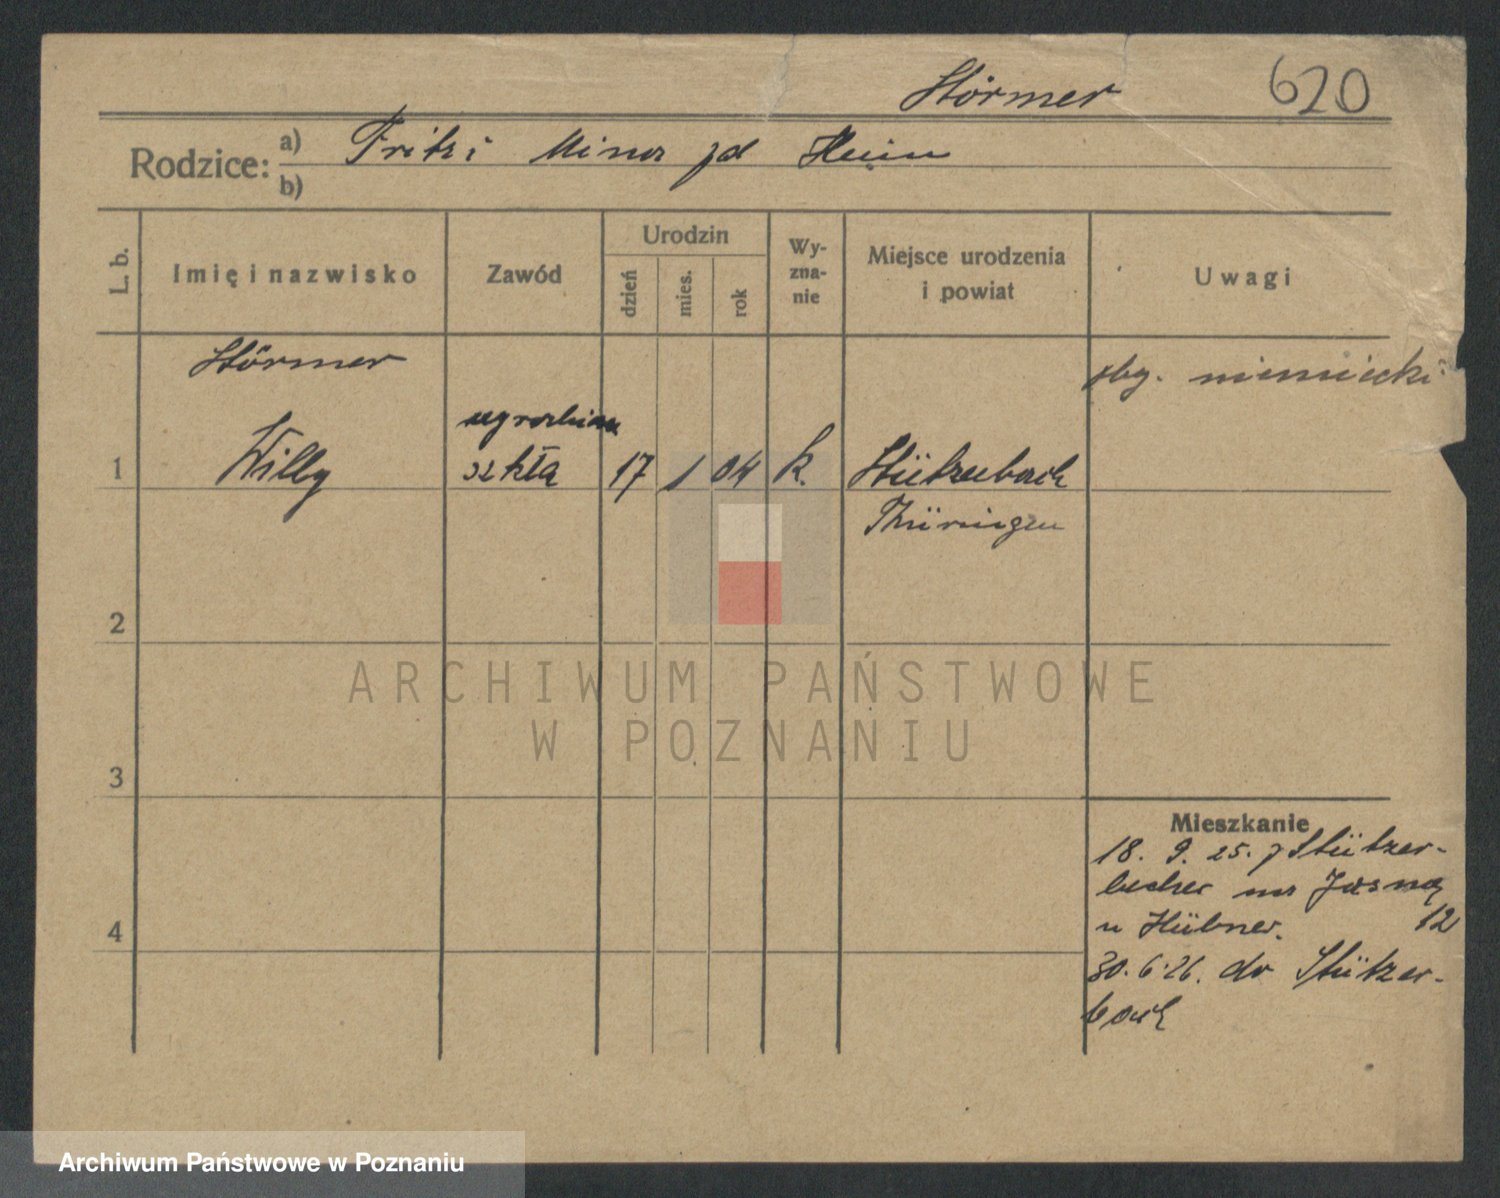 Störmer 620
Rodzice: a) Fritz i Mina zd Hein
b)
L. b.
Imię i nazwisko
Zawód
Urodzin
dzień
mies.
rok
Wy-
zna-
nie
Miejsce urodzenia
i powiat
Uwagi
Störmer
oby. niemiecki
1 Willy
szkła 17 1 04 k. Stützerbach
Thüringen
2
3
4
Mieszkanie
18. 9. 25. z Stützer-
na Jasna
12
u Hübner.
30. 6. 26. do Stützer-
bach
ARCHIWUM PAŃSTWOWE
W POZNANIU
Archiwum Państwowe w Poznaniu